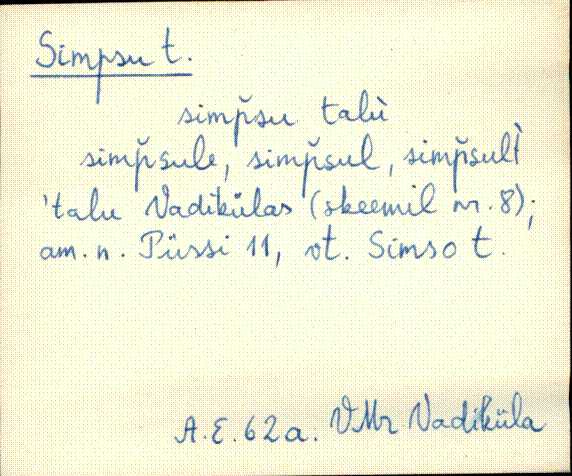 Simpsu t.
simp̆su talù
simp̆sule, simp̆sul, simp̆sult̀
'talu Vadikülas (skeemil nr. 8);
am. n. Püssi 11, vt. Simso t.
A.E. 62a. VMr Vadiküla